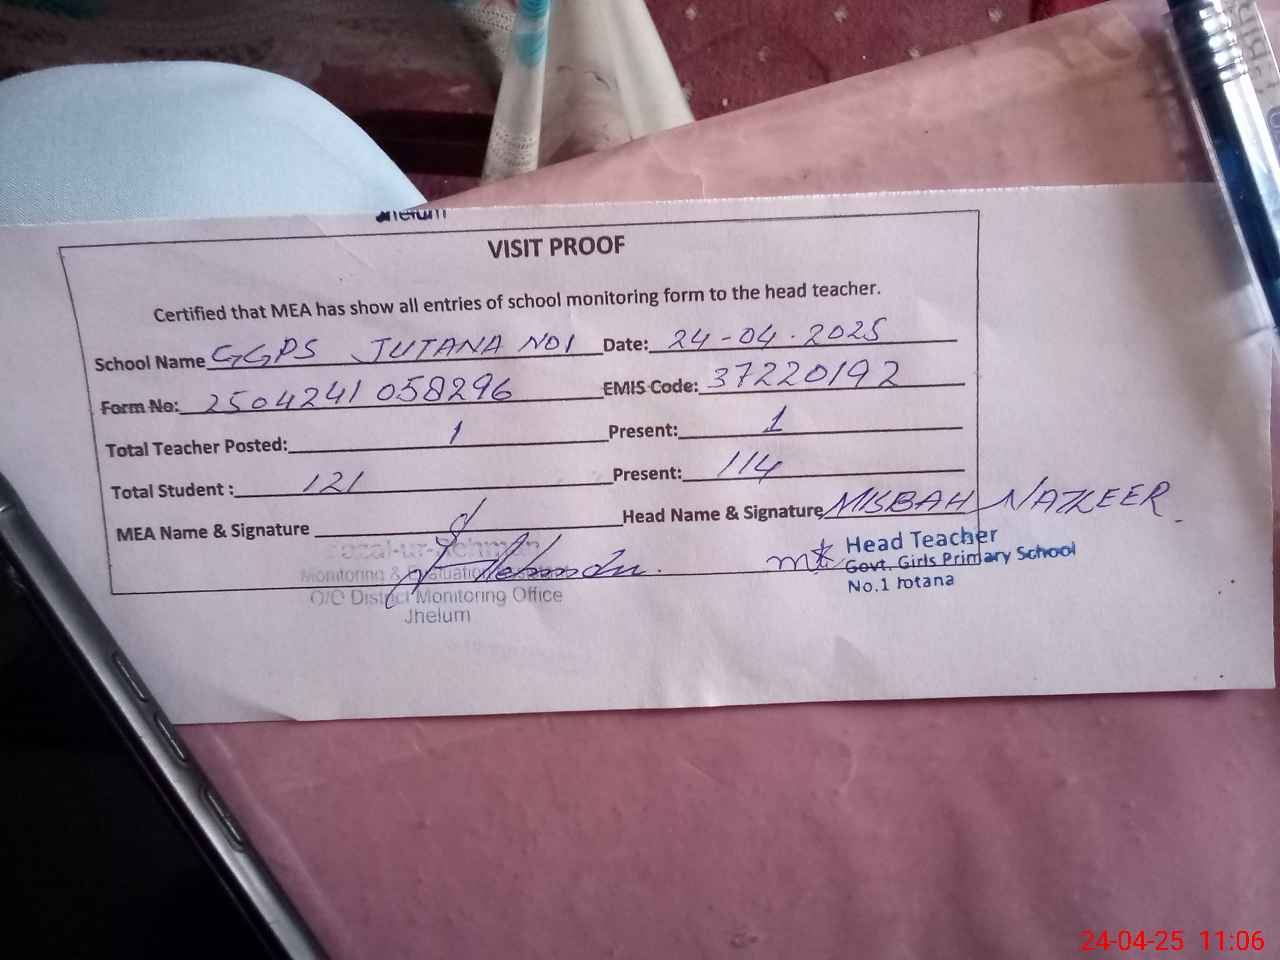 Jhelum
VISIT PROOF
Certified that MEA has show all entries of school monitoring form to the head teacher.
School Name GGPS JUTANA NO1 Date: 24-04.2025
Form No: 2504241058296 EMIS Code: 37220192
Total Teacher Posted: 1 Present: 1
Total Student : 121 Present: 114
MEA Name & Signature Head Name & Signature MISBAH NAZEER
Head Teacher
Govt. Girls Primary School
No.1 Jotana
Monitoring & Evaluation
O/O District Monitoring Office
Jhelum
24-04-25 11:06